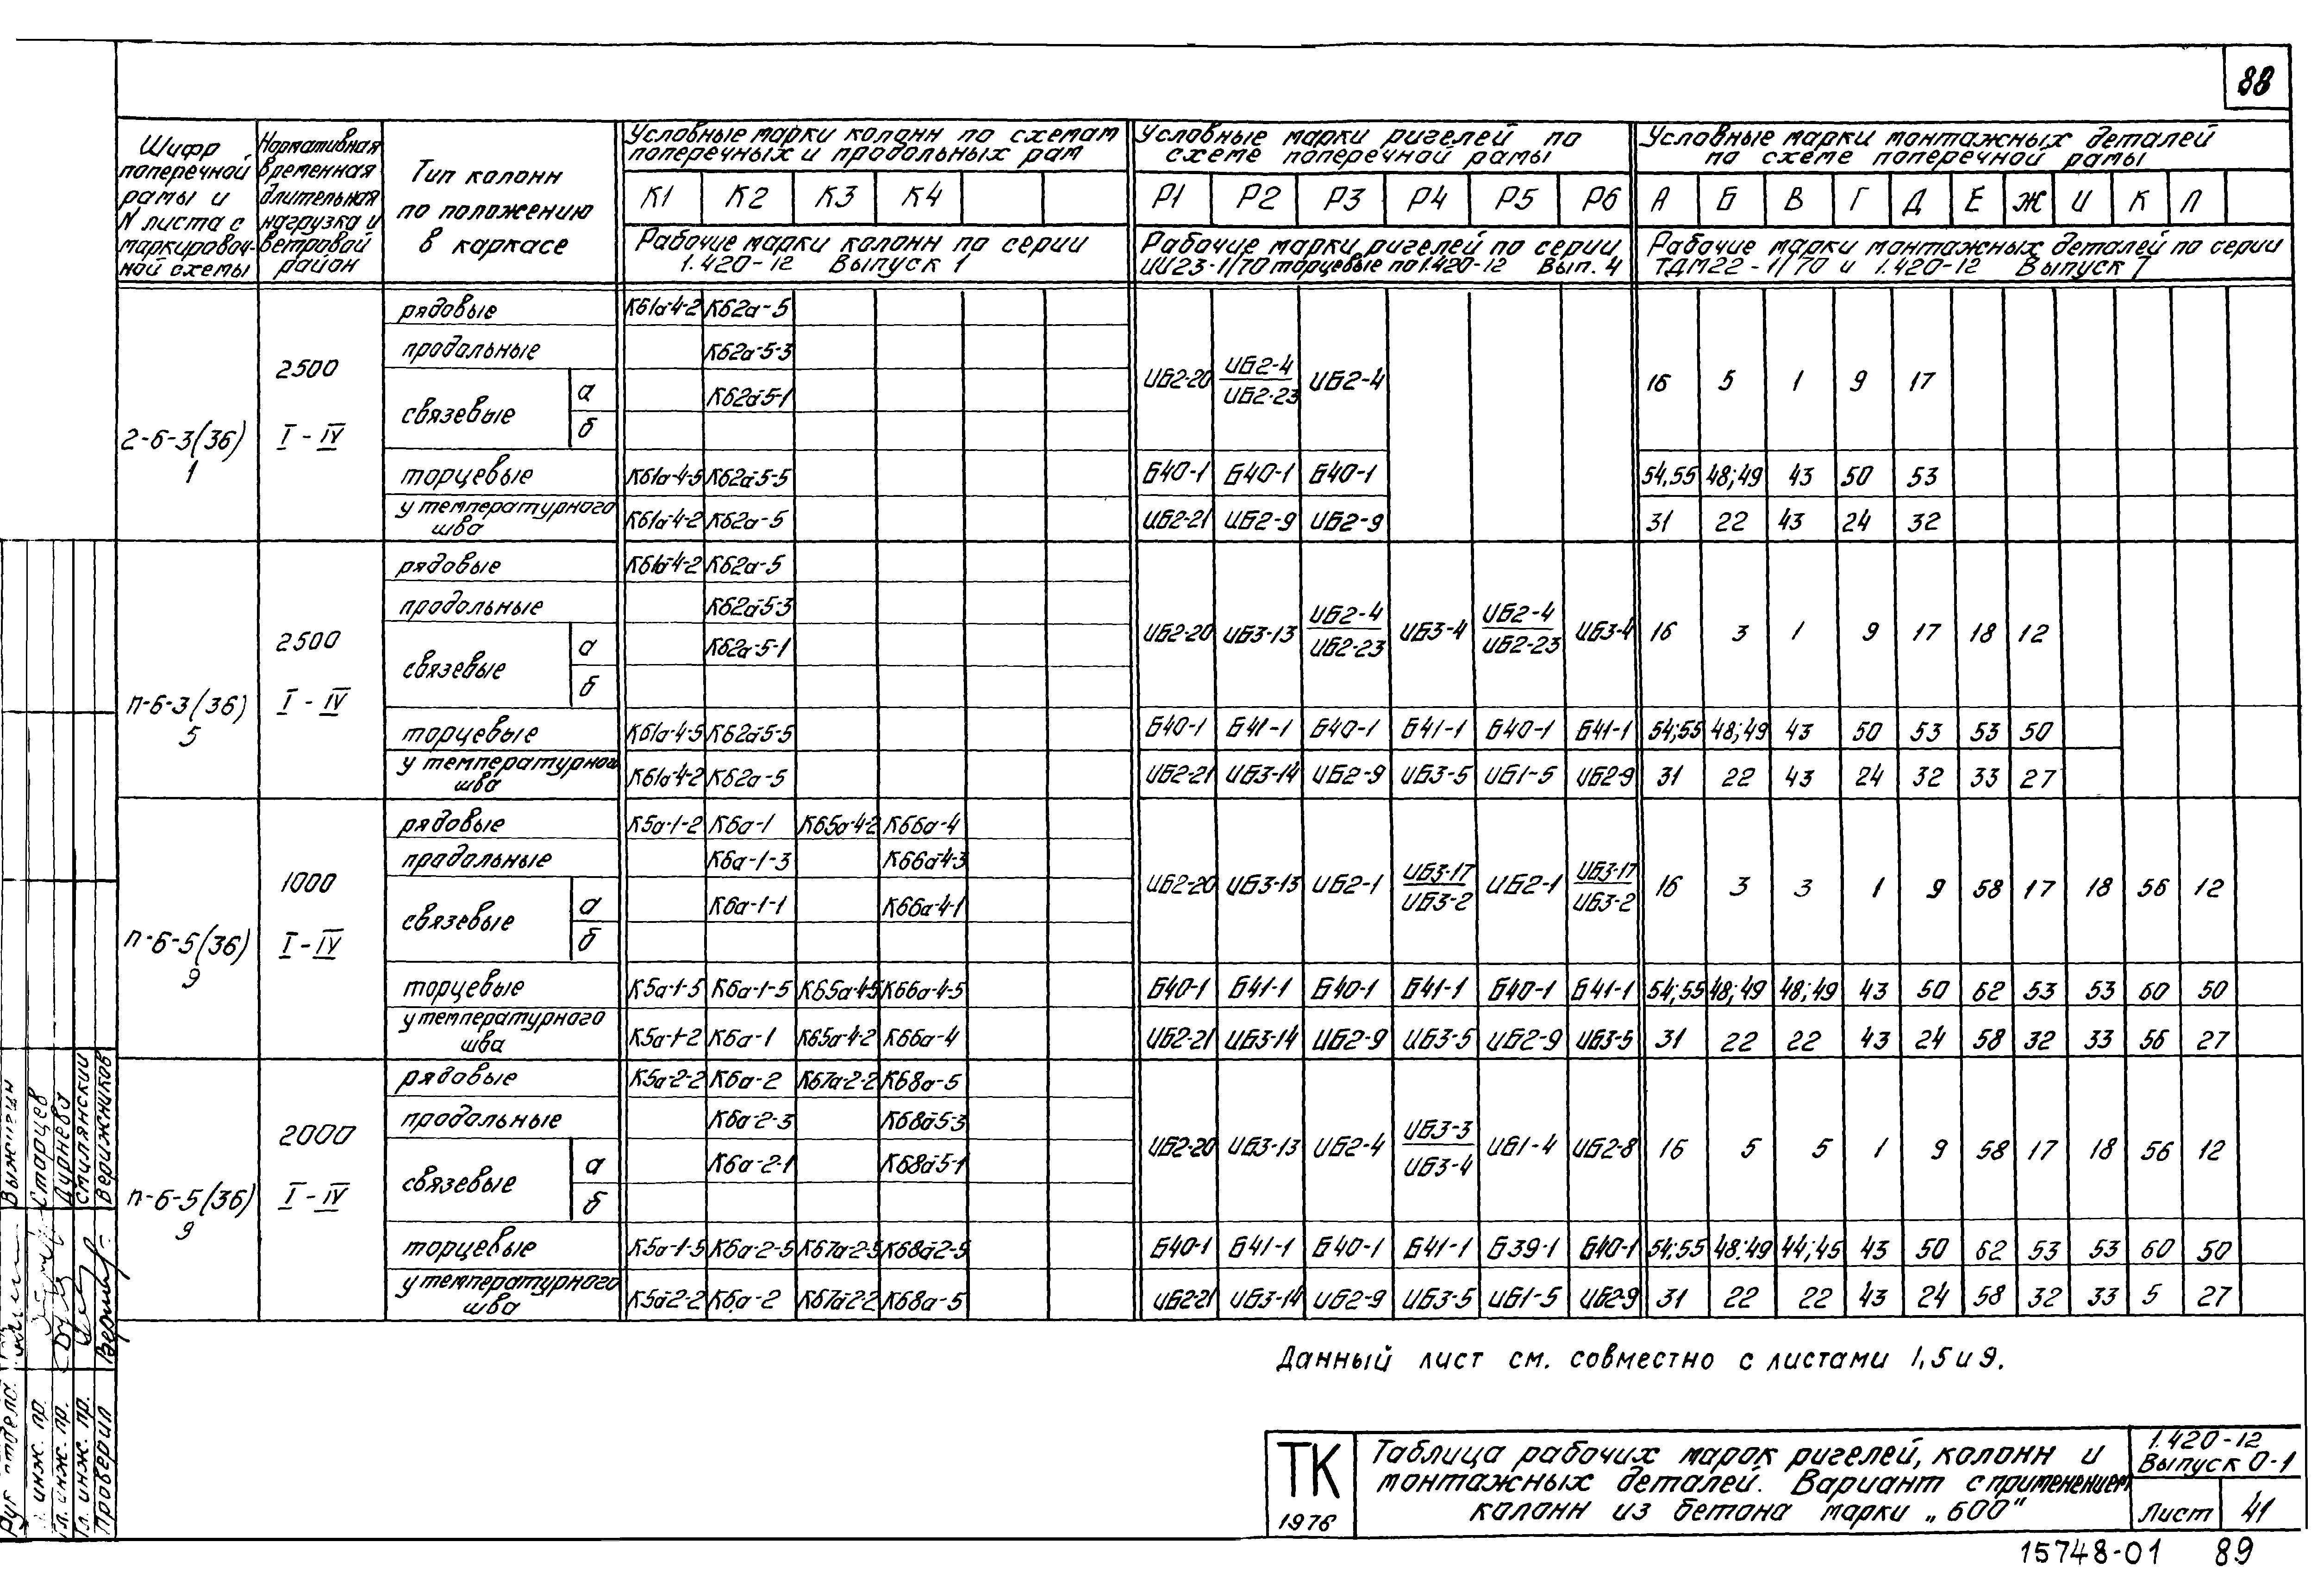 88
Шифр поперечной рамы и N листа с маркировочной схемы
Нормативная временная длительная нагрузка и ветровой район
Тип колонн по положению в каркасе
Условные марки колонн по схемам поперечных и продольных рам
Условные марки ригелей по схеме поперечной рамы
Условные марки монтажных деталей по схеме поперечной рамы
К1 К2 К3 К4 Р1 Р2 Р3 Р4 Р5 Р6 А Б В Г Д Е Ж И К Л
Рабочие марки колонн по серии 1.420-12 Выпуск 1
Рабочие марки ригелей по серии ИИ23-1/70 торцевые по 1.420-12 Вып. 4
Рабочие марки монтажных деталей по серии ТДМ22-1/70 и 1.420-12 Выпуск 7
2-6-3(36) 1
2500 I-IV
рядовые К61а-4-2 К62а-5
продольные К62а-5-3
связевые а К62а-5-1
б
ИБ2-20 ИБ2-4/ИБ2-23 ИБ2-4 16 5 1 9 17
торцевые К61а-4-5 К62а-5-5 Б40-1 Б40-1 Б40-1 54,55 48;49 43 50 53
у температурного шва К61а-4-2 К62а-5 ИБ2-21 ИБ2-9 ИБ2-9 31 22 43 24 32
п-6-3(36) 5
2500 I-IV
рядовые К61а-4-2 К62а-5
продольные К62а-5-3
связевые а К62а-5-1
б
ИБ2-20 ИБ3-13 ИБ2-4/ИБ2-23 ИБ3-4 ИБ2-4/ИБ2-23 ИБ3-4 16 3 1 9 17 18 12
торцевые К61а-4-5 К62а-5-5 Б40-1 Б41-1 Б40-1 Б41-1 Б40-1 Б41-1 54;55 48;49 43 50 53 53 50
у температурного шва К61а-4-2 К62а-5 ИБ2-21 ИБ3-14 ИБ2-9 ИБ3-5 ИБ1-5 ИБ2-9 31 22 43 24 32 33 27
п-6-5(36) 9
1000 I-IV
рядовые К5а-1-2 К6а-1 К65а-4-2 К66а-4
продольные К6а-1-3 К66а-4-3
связевые а К6а-1-1 К66а-4-1
б
ИБ2-20 ИБ3-13 ИБ2-1 ИБ3-17/ИБ3-2 ИБ2-1 ИБ3-17/ИБ3-2 16 3 3 1 9 58 17 18 56 12
торцевые К5а-1-5 К6а-1-5 К65а-4-5 К66а-4-5 Б40-1 Б41-1 Б40-1 Б41-1 Б40-1 Б41-1 54;55 48;49 48;49 43 50 62 53 53 60 50
у температурного шва К5а-1-2 К6а-1 К65а-4-2 К66а-4 ИБ2-21 ИБ3-14 ИБ2-9 ИБ3-5 ИБ2-9 ИБ3-5 31 22 22 43 24 58 32 33 56 27
п-6-5(36) 9
2000 I-IV
рядовые К5а-2-2 К6а-2 К67а-2-2 К68а-5
продольные К6а-2-3 К68а-5-3
связевые а К6а-2-1 К68а-5-1
б
ИБ2-20 ИБ3-13 ИБ2-4 ИБ3-3/ИБ3-4 ИБ1-4 ИБ2-8 16 5 5 1 9 58 17 18 56 12
торцевые К5а-1-5 К6а-2-5 К67а-2-5 К68а-2-5 Б40-1 Б41-1 Б40-1 Б41-1 Б39-1 Б40-1 54;55 48:49 44;45 43 50 62 53 53 60 50
у температурного шва К5а-2-2 К6а-2 К67а-2-2 К68а-5 ИБ2-21 ИБ3-14 ИБ2-9 ИБ3-5 ИБ1-5 ИБ2-9 31 22 22 43 24 58 32 33 5 27
Данный лист см. совместно с листами 1,5 и 9.
ТК
1976
Таблица рабочих марок ригелей, колонн и
монтажных деталей. Вариант с применением
колонн из бетона марки „600"
1.420-12
Выпуск 0-1
Лист 41
15748-01 89
Выжигин
Старцев
Дурнева
Смилянский
Верижников
инж. пр.
Гл. инж. пр.
Гл. инж. пр.
Проверил